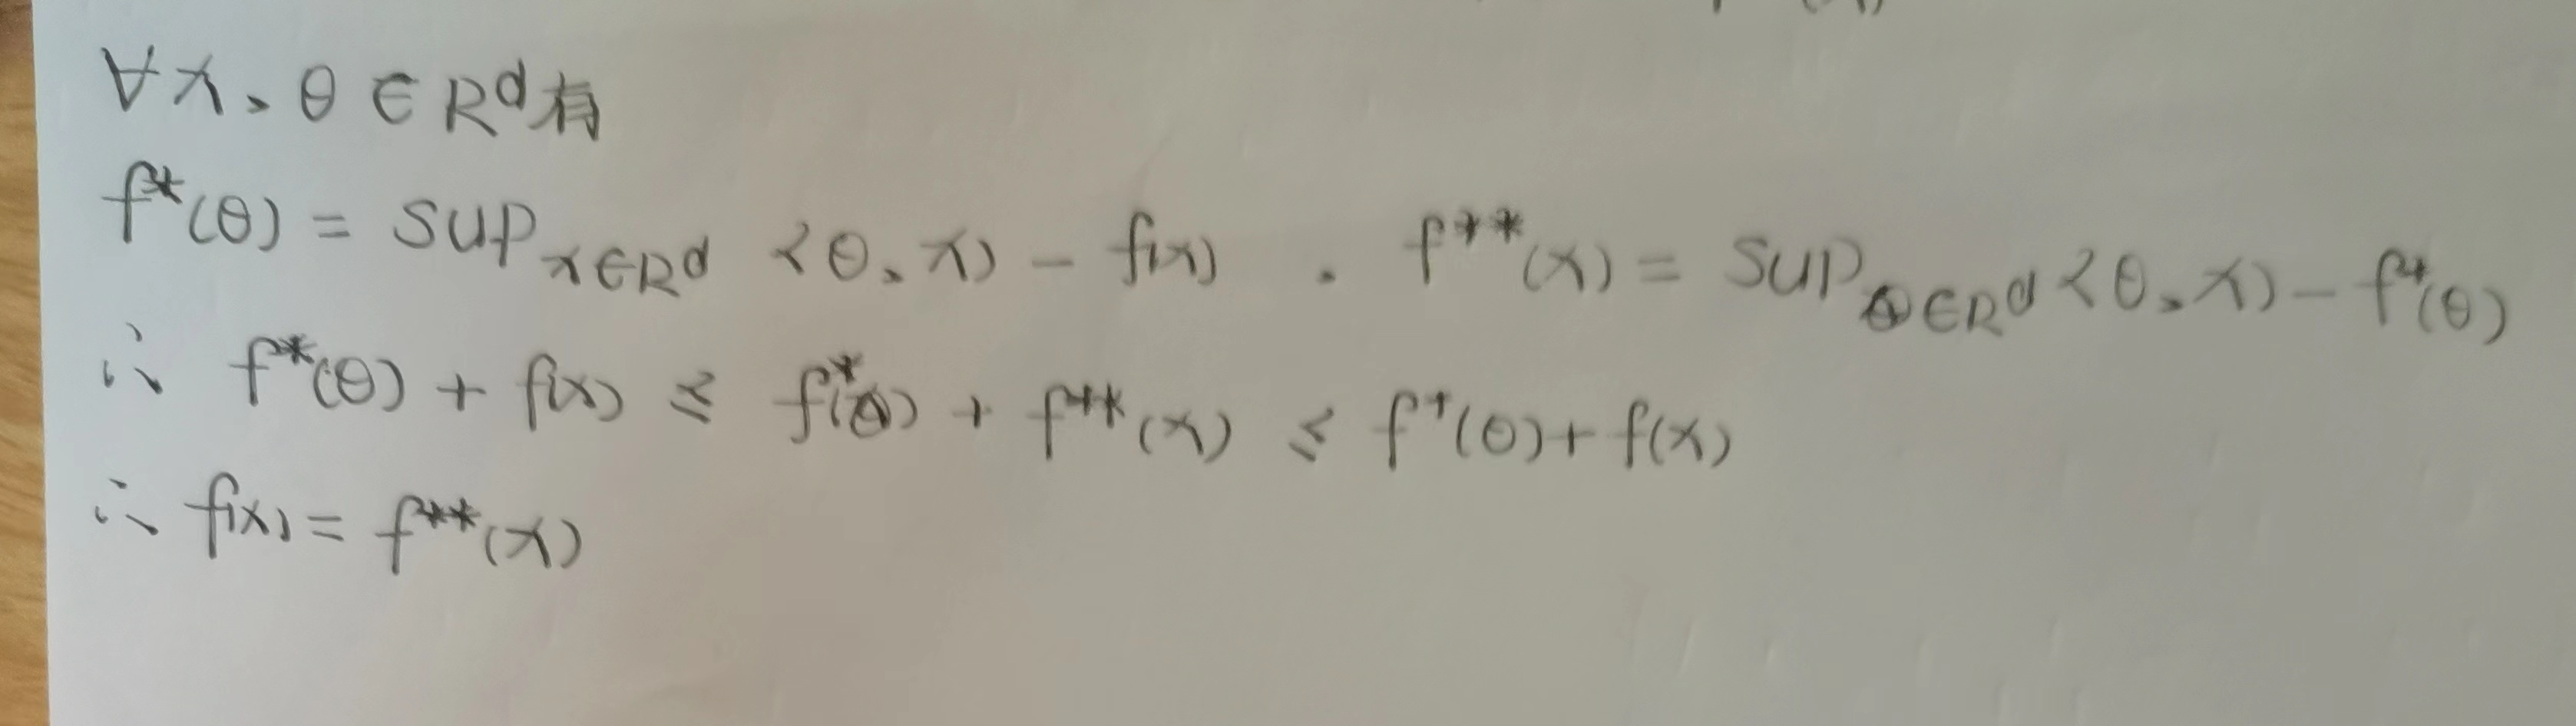 ∀x、θ∈R^d有
f*(θ) = sup_{x∈R^d} <θ、x) - f(x) . f**(x) = sup_{θ∈R^d} <θ、x) - f*(θ)
∴ f*(θ) + f(x) ≤ f*(θ) + f**(x) ≤ f*(θ) + f(x)
∴ f(x) = f**(x)